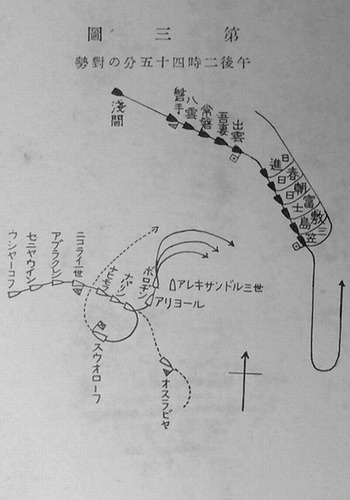 第三圖
午後二時四十五分の對勢
淺間
磐手
八雲
常磐
吾妻
出雲
日進
春日
朝日
富士
敷島
三笠
ボロヂン
アレキサンドル三世
アリヨール
ナバリン
ナヒモフ
ニコライ一世
アプラクシン
セニヤウイン
ウシヤーコフ
スウオーロフ
オスラビヤ